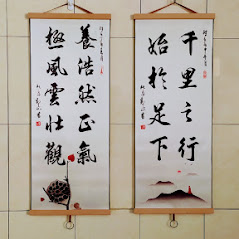 千里之行
始於足下
養浩然正氣
極風雲壯觀